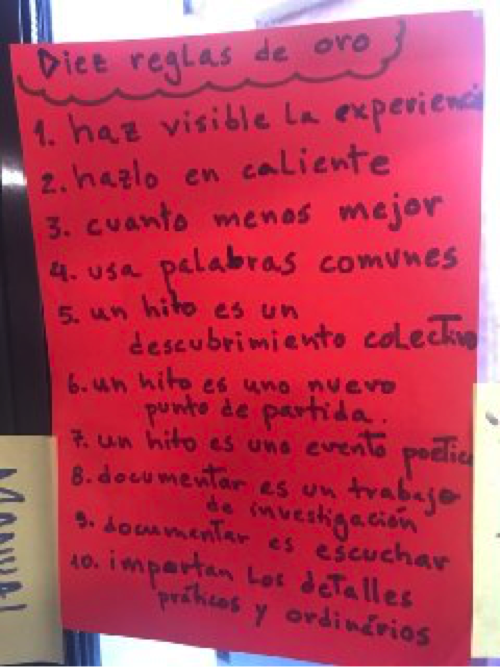 Diez reglas de oro
1. haz visible la experiencia
2. hazlo en caliente
3. cuanto menos mejor
4. usa palabras comunes
5. un hito es un
descubrimiento colectivo
6. un hito es uno nuevo
punto de partida.
7. un hito es uno evento poetico
8. documentar es un trabajo
de investigación
9. documentar es escuchar
10. importan los detalles
práticos y ordinários
MANUAL